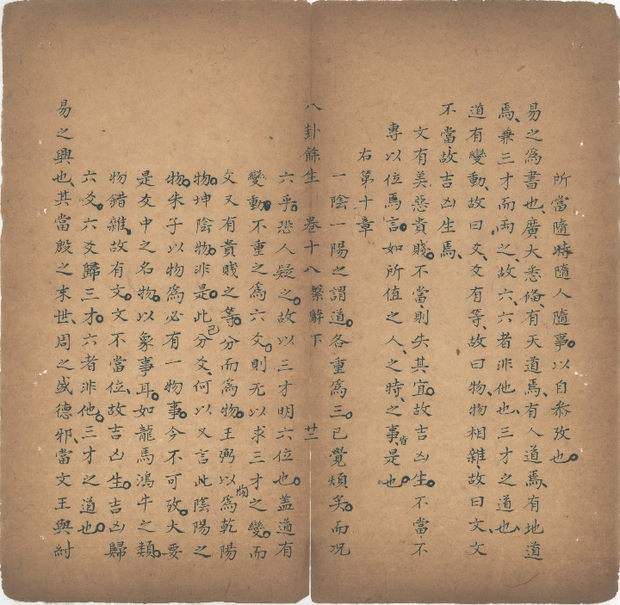 所當隨時隨人隨事以自參攷也
易之為書也廣大悉俻有天道焉有人道焉有地道
焉兼三才而兩之故六六者非他也三才之道也
道有變動故曰爻爻有等故曰物物相雜故曰文文
不當故吉凶生焉
文有美惡貴賤不當則失其宜故吉凶生不當不
專以位焉言如所值之人之時之事皆是也
右第十章
一陰一陽之謂道各重為三已覺煩矣而况
八卦餘生 卷十八 繫辭下 廿二
六乎恐人疑之故以三才明六位也蓋道有
變動不重之為六爻則无以求三才之變而
文又有貴賤之等分而為物王弼以為乾陽
物坤陰物非是此已分爻何以又言此陰陽之
物朱子以物為必有一物事今不可攷大要
是爻中之名物以象事耳如龍馬鴻牛之類
物錯雜故有文文不當位故吉凶生吉凶歸
六爻六爻歸三才六者非他三才之道也
易之興也其當殷之末世周之盛德邪當文王與紂